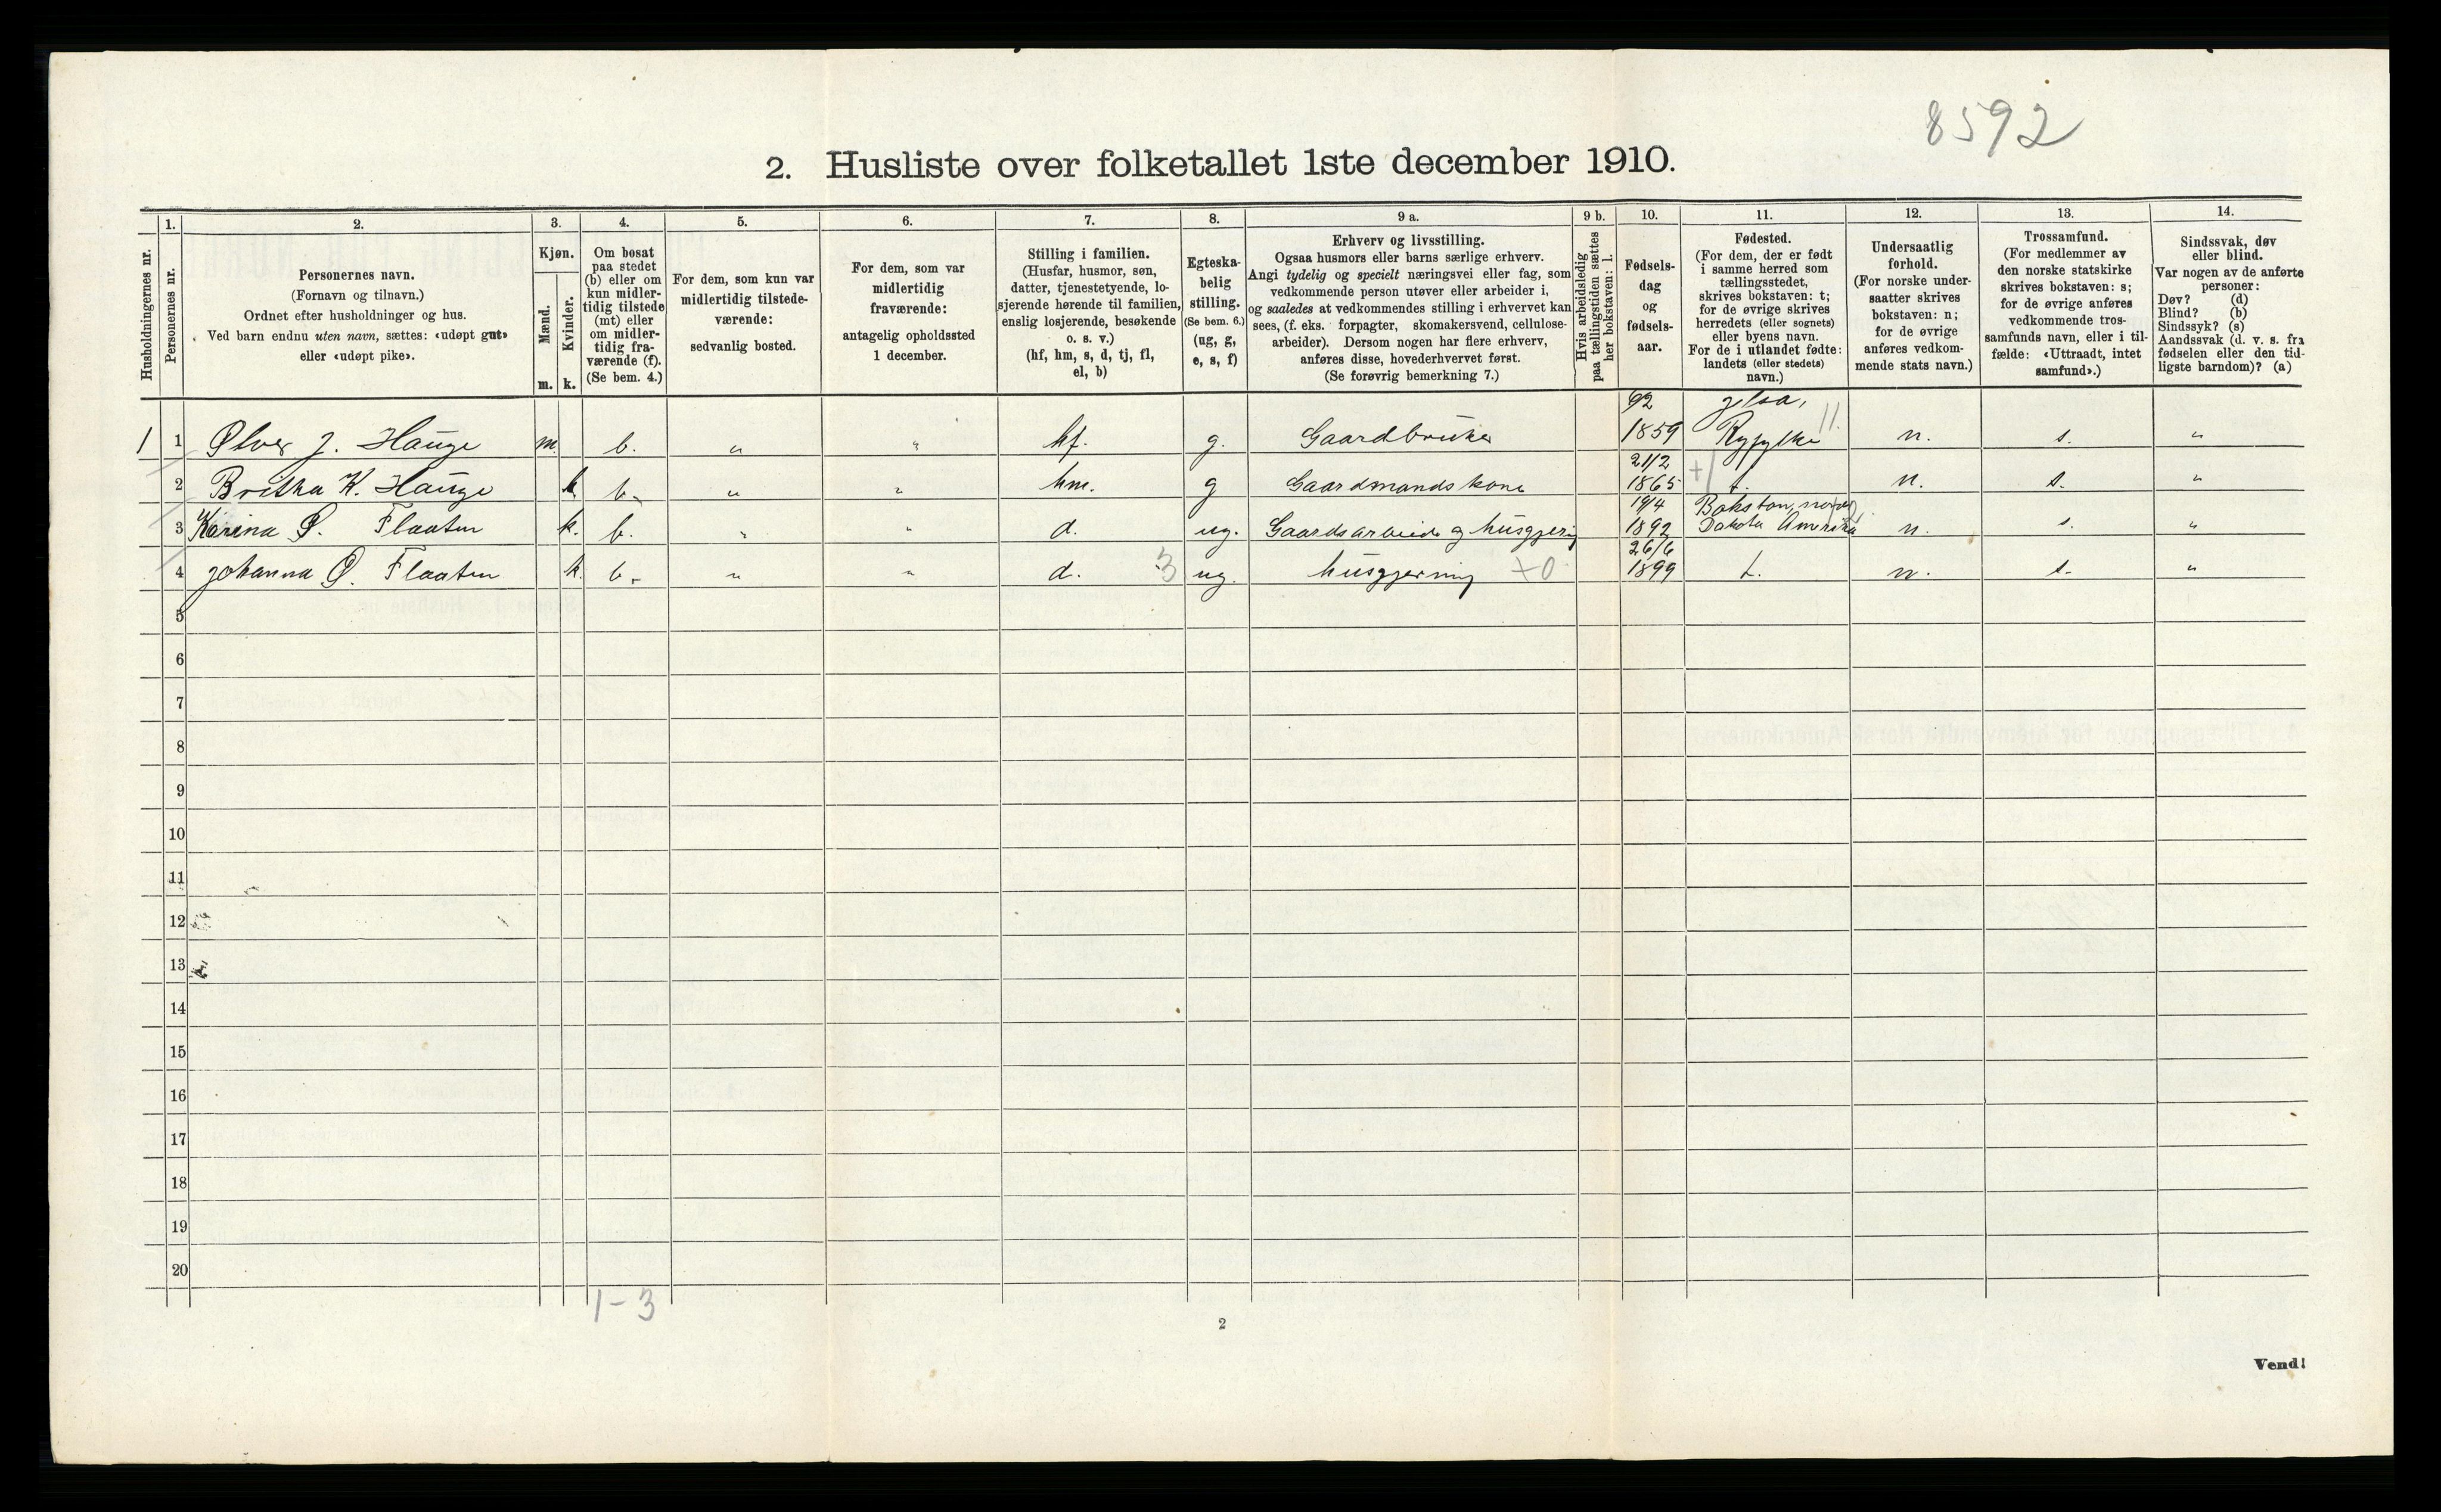 8592
2. Husliste over folketallet 1ste december 1910.
Husholdningernes nr.
1.
Personernes nr.
2.
Personernes navn.
(Fornavn og tilnavn.)
Ordnet efter husholdninger og hus.
Ved barn endnu uten navn, sættes: «udøpt gut»
eller «udøpt pike».
3.
Kjøn.
Mænd.
m.
Kvinder.
k.
4.
Om bosat
paa stedet
(b) eller om
kun midler-
tidig tilstede
(mt) eller
om midler-
tidig fra-
værende (f).
(Se bem. 4.)
5.
For dem, som kun var
midlertidig tilstede-
værende:
sedvanlig bosted.
6.
For dem, som var
midlertidig
fraværende:
antagelig opholdssted
1 december.
7.
Stilling i familien.
(Husfar, husmor, søn,
datter, tjenestetyende, lo-
sjerende hørende til familien,
enslig losjerende, besøkende
o. s. v.)
(hf, hm, s, d, tj, fl,
el, b)
8.
Egteska-
belig
stilling.
(Se bem. 6.)
(ug, g,
e, s, f)
9 a.
Erhverv og livsstilling.
Ogsaa husmors eller barns særlige erhverv.
Angi tydelig og specielt næringsvei eller fag, som
vedkommende person utøver eller arbeider i,
og saaledes at vedkommendes stilling i erhvervet kan
sees, (f. eks. forpagter, skomakersvend, cellulose-
arbeider). Dersom nogen har flere erhverv,
anføres disse, hovederhvervet først.
(Se forøvrig bemerkning 7.)
9 b.
Hvis arbeidsledig
paa tællingstiden sættes
her bokstaven: l.
10.
Fødsels-
dag
og
fødsels-
aar.
11.
Fødested.
(For dem, der er født
i samme herred som
tællingsstedet,
skrives bokstaven: t;
for de øvrige skrives
herredets (eller sognets)
eller byens navn.
For de i utlandet fødte:
landets (eller stedets)
navn.)
12.
Undersaatlig
forhold.
(For norske under-
saatter skrives
bokstaven: n;
for de øvrige
anføres vedkom-
mende stats navn.)
13.
Trossamfund.
(For medlemmer av
den norske statskirke
skrives bokstaven: s;
for de øvrige anføres
vedkommende tros-
samfunds navn, eller i til-
fælde: «Uttraadt, intet
samfund».)
14.
Sindssvak, døv
eller blind.
Var nogen av de anførte
personer:
Døv? (d)
Blind? (b)
Sindssyk? (s)
Aandssvak (d. v. s. fra
fødselen eller den tid-
ligste barndom)? (a)
1 1 Ølver J. Hauge m. b. " " hf. g. Gaardbruker 1859 Ryfylke 11 n. s. "
2 Britha K. Hauge k b. " " hm. g Gaardmandskone 21/2 1865 +1 t. n. s. "
3 Karina Ø. Flaaten k. b. " " d. ug. Gaardsarbeide og husgjerning 19/4 1892 Dakota Amerika n. s. "
4 Johanna Ø. Flaaten k. b. " " d. 3 ug. husgjerning +0 26/6 1899 t. n. s. "
5
6
7
8
9
10
11
12
13
14
15
16
17
18
19
20
1-3
2
Vend!